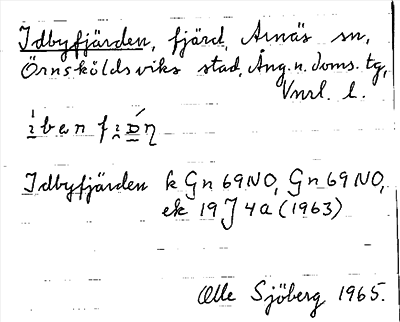 Idbyfjärden, fjärd, Arnäs sn,
Örnsköldsviks stad, Ång. n. doms. tg,
Vnrl. l.
Idbyfjärden k Gn 69 NO, Gn 69 NO,
ek 19 J 4a (1963)
Olle Sjöberg 1965.